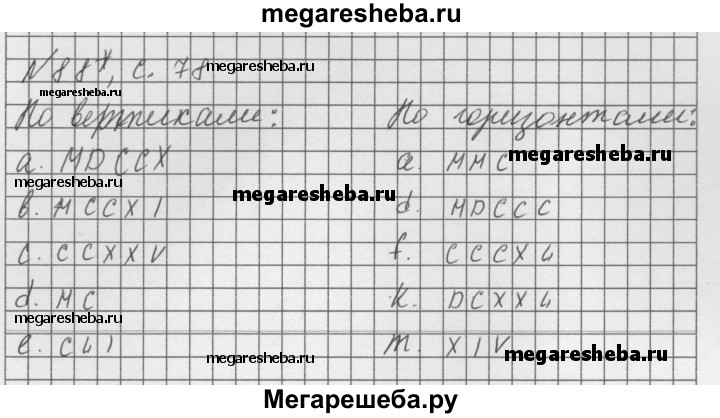 megaresheba.ru
N 88*, с. 78 megaresheba.ru
megaresheba.ru
По вертикали: По горизонтали:
a. MDCCX a. MMC megaresheba.ru
megaresheba.ru megaresheba.ru
b. MCCXI d. MDCCC
c. CCXXV f. CCCX4
d. MC k. DCXX4
megaresheba.ru
e. C41 megaresheba.ru m. XIV megaresheba.ru
Мегарешеба.ру